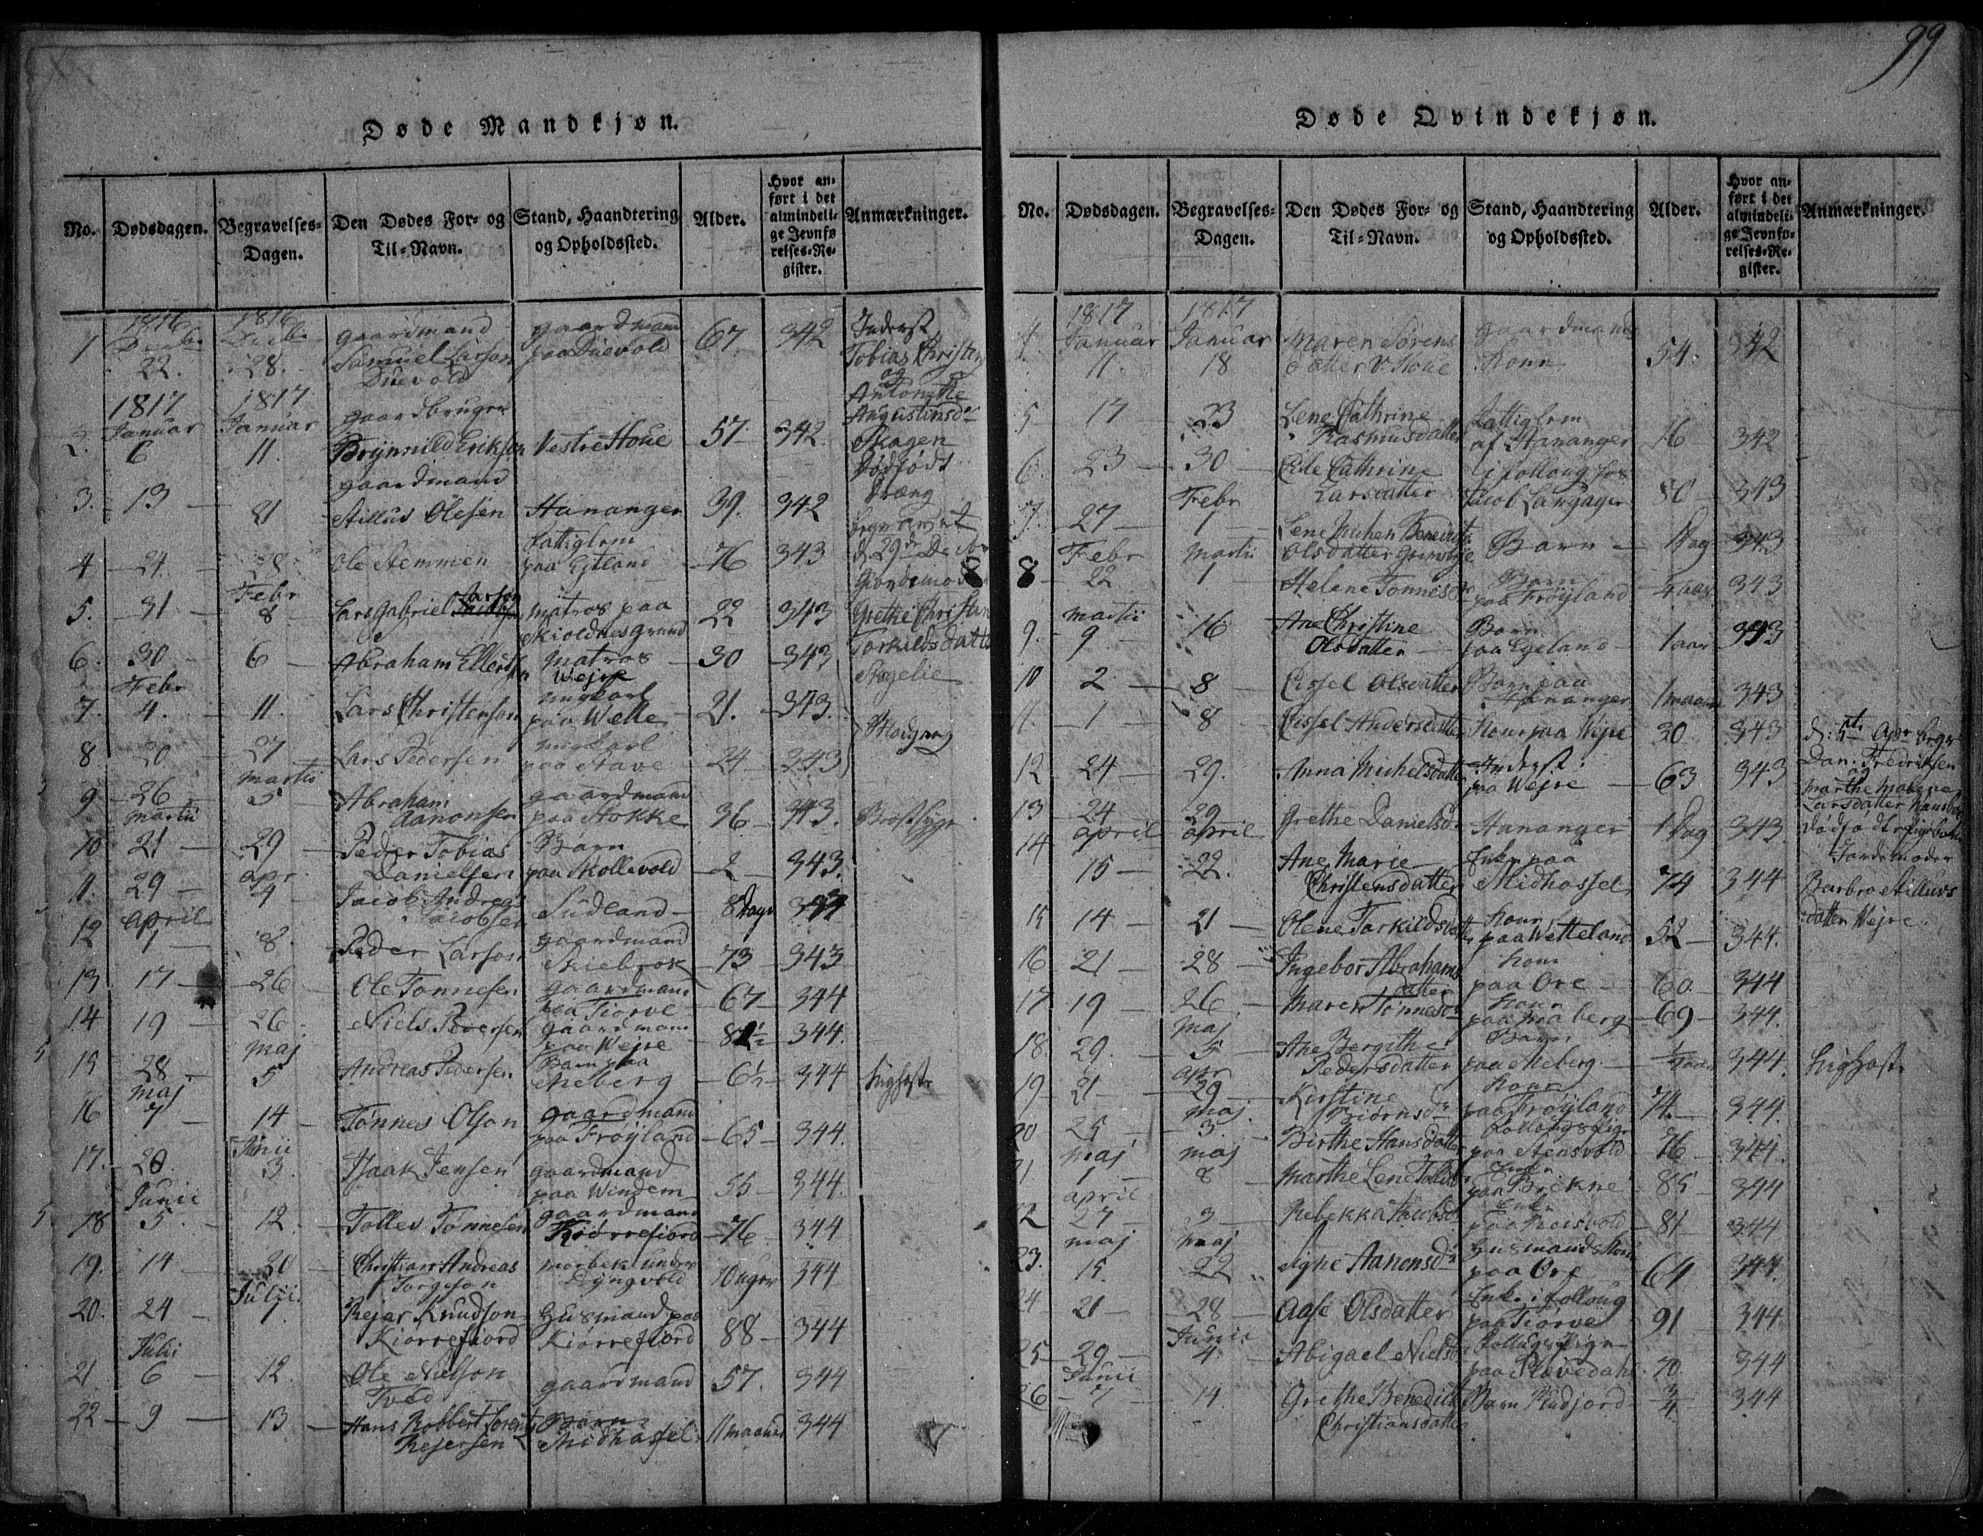 99
Døde Mandkjøn.
No. Dødsdagen. Begravelses-Dagen. Den Dødes For- og Til-Navn. Stand, Haandtering og Opholdssted. Alder. Hvor anført i det almindelige Jevnførelses-Register. Anmærkninger.
1 1816 Decbr 22. 1816 Decbr 28. gaardmand Samuel Larson Duevold gaardmand paa Duevold 67 342
Inderst
Tobias Christens
og
Antonette
Augustinsdr
Skagen
Dødfødt
Dræng
2. 1817 Januar 6 1817 Januar 11. gaardbruger Brynnild Erikson Vestre Houe 57 342.
3. 13 21 gaardmand Stillus Olesen Hananger 39. 342
4 24. 28 Ole Stemmen Fattiglem paa Egtland 76 343
d. 29 Decbr
Giordemoder
5. 31 Febr 8 Lars Gabriel Larson matros paa Skioldnes grund 22 343
Grethe Christina
Torkildsdatter
6. 30 6 Abraham Ellertsen matros Wejre 30 343
7. Febr 4. 11. Lars Christenson ungkarl paa Wette 21. 343.
8 20 27 Lars Pedersen ungkarl paa Stave 24 343
9 26 martii 5 Abraham Aanonsen gaardmand paa Stokke 36 343. Brostsyge
10 martii 21 29 Peder Tobias Danielsen Barn paa Skollevold 2 343.
11. 29 apr. 4 Jacob Andreas Jacobsen Sudland 8 Dage 343
12 April 1 8. Peder Larson gaardmand Skiebrok 73 343
13 17 26 Ole Tonnesen gaardmand paa Tiorve 67 344
14 19 26 Niels Pedersen gaardmand paa Wejre 82½ 344.
15 28. Maj 5 Andreas Pedersen Barn paa Meberg 6½ 344 kighoste
16 Maj 7 14 Tønnes Olson gaardmand paa Frøyland 65 344.
17. 28. Junii 3 Isaak Jensen gaardmand paa Windem 55 344.
18 Junii 5. 12. Tollev Tonnesen gaardmand Kiørrefiord 76 344
19. 14 20 Christian Andreas Torgeson Dyngvold 10 uger 344
20. 24 Julii. 1 Rejar Knudson Kiørrefiord Husmand paa Kiørrefiord 88 344
21 Julii 6 12. Ole Nielson Tved gaardmand 57. 344
22 9 13 Hans Robbert Lorentz Rejersen Barn Midhassel 11 maaned 344
Døde Qvindekjøn.
No. Dødsdagen. Begravelses-Dagen. Den Dødes For- og Til-Navn. Stand, Haandtering og Opholdssted. Alder. Hvor anført i det almindelige Jevnførelses-Register. Anmærkninger.
4. 1817 Januar 11. 1817 Januar 18 Maren Sørensdatter V. Houe gaardmands Kone 54. 342
5 17 23 Lene Cathrine Rasmusdatter Fattiglem af Hananger 76 342
6 23 30 Cathrine Larsdatter i folloug hos Jacob Langager 80 343
7. 27 Febr 1 Lene Olsdatter Barn 1 Dag 343
8 Febr 22 Martii 1 Helene Tonnesdr Barn paa Frøyland 4 aar 343
9. martii 9 16 Ane Christine Olsdatter Barn paa Egeland 1 aar 343
10 2 8 Cissel Olsdatter Barn paa Hananger 1 maaned 343
11. 1 8 Cissel Andersdatter Kone paa Wejre 30 343
12 24 29. Anna Michelsdatter Inderst paa Wejre 63 343
d: 5te Apr. begr
Dan. Fredriksen
og
Marthe Malene
Larsdatter
Dødfødt Pigebarn
Jordemoder
Barbro Stilluvs
datter Wejre
13 24 29 Grethe Danielsdr Hananger 1 Dag 343
14 april 15 april 22. Ane Marie Christensdatter Enke paa Midhassel 74 344
15 14 21 Olene Torkildsdatter Kone paa Wetteland 52 344.
16 21 28 Ingebor Abrahamsdatter Kone paa Ore 60 344
17 19 26 Maren Tønnesdr Kone 69 344.
18. 29. Maj 5 Ane Bergithe Pedersdatter Barn paa Meberg ½ aar 344. kighoste
19 21 apr 29 Kirstine Biørnsdr Kone paa Frøyland 74. 344.
20 25 maj. 3. Birthe Hansdatter paa Stensvold 76 344.
21 maj 1 maj 8 Marthe Lene Enke paa Brekne 85 344
22 april 27 3 Rebekka Enke 81 344
23. maj 15. maj 22 Signe Aanonsdr Husmands Kone paa Ore 64 344.
24 21 28 Aase Olsdatter Enke i folloug paa Tiorve 91 344.
25 29 Junii 4 Abigael Nielsdr 70. 344
26 Junii 7 14 Grethe Benedicte Christiansdatter Barn Rudjord ¾ 344